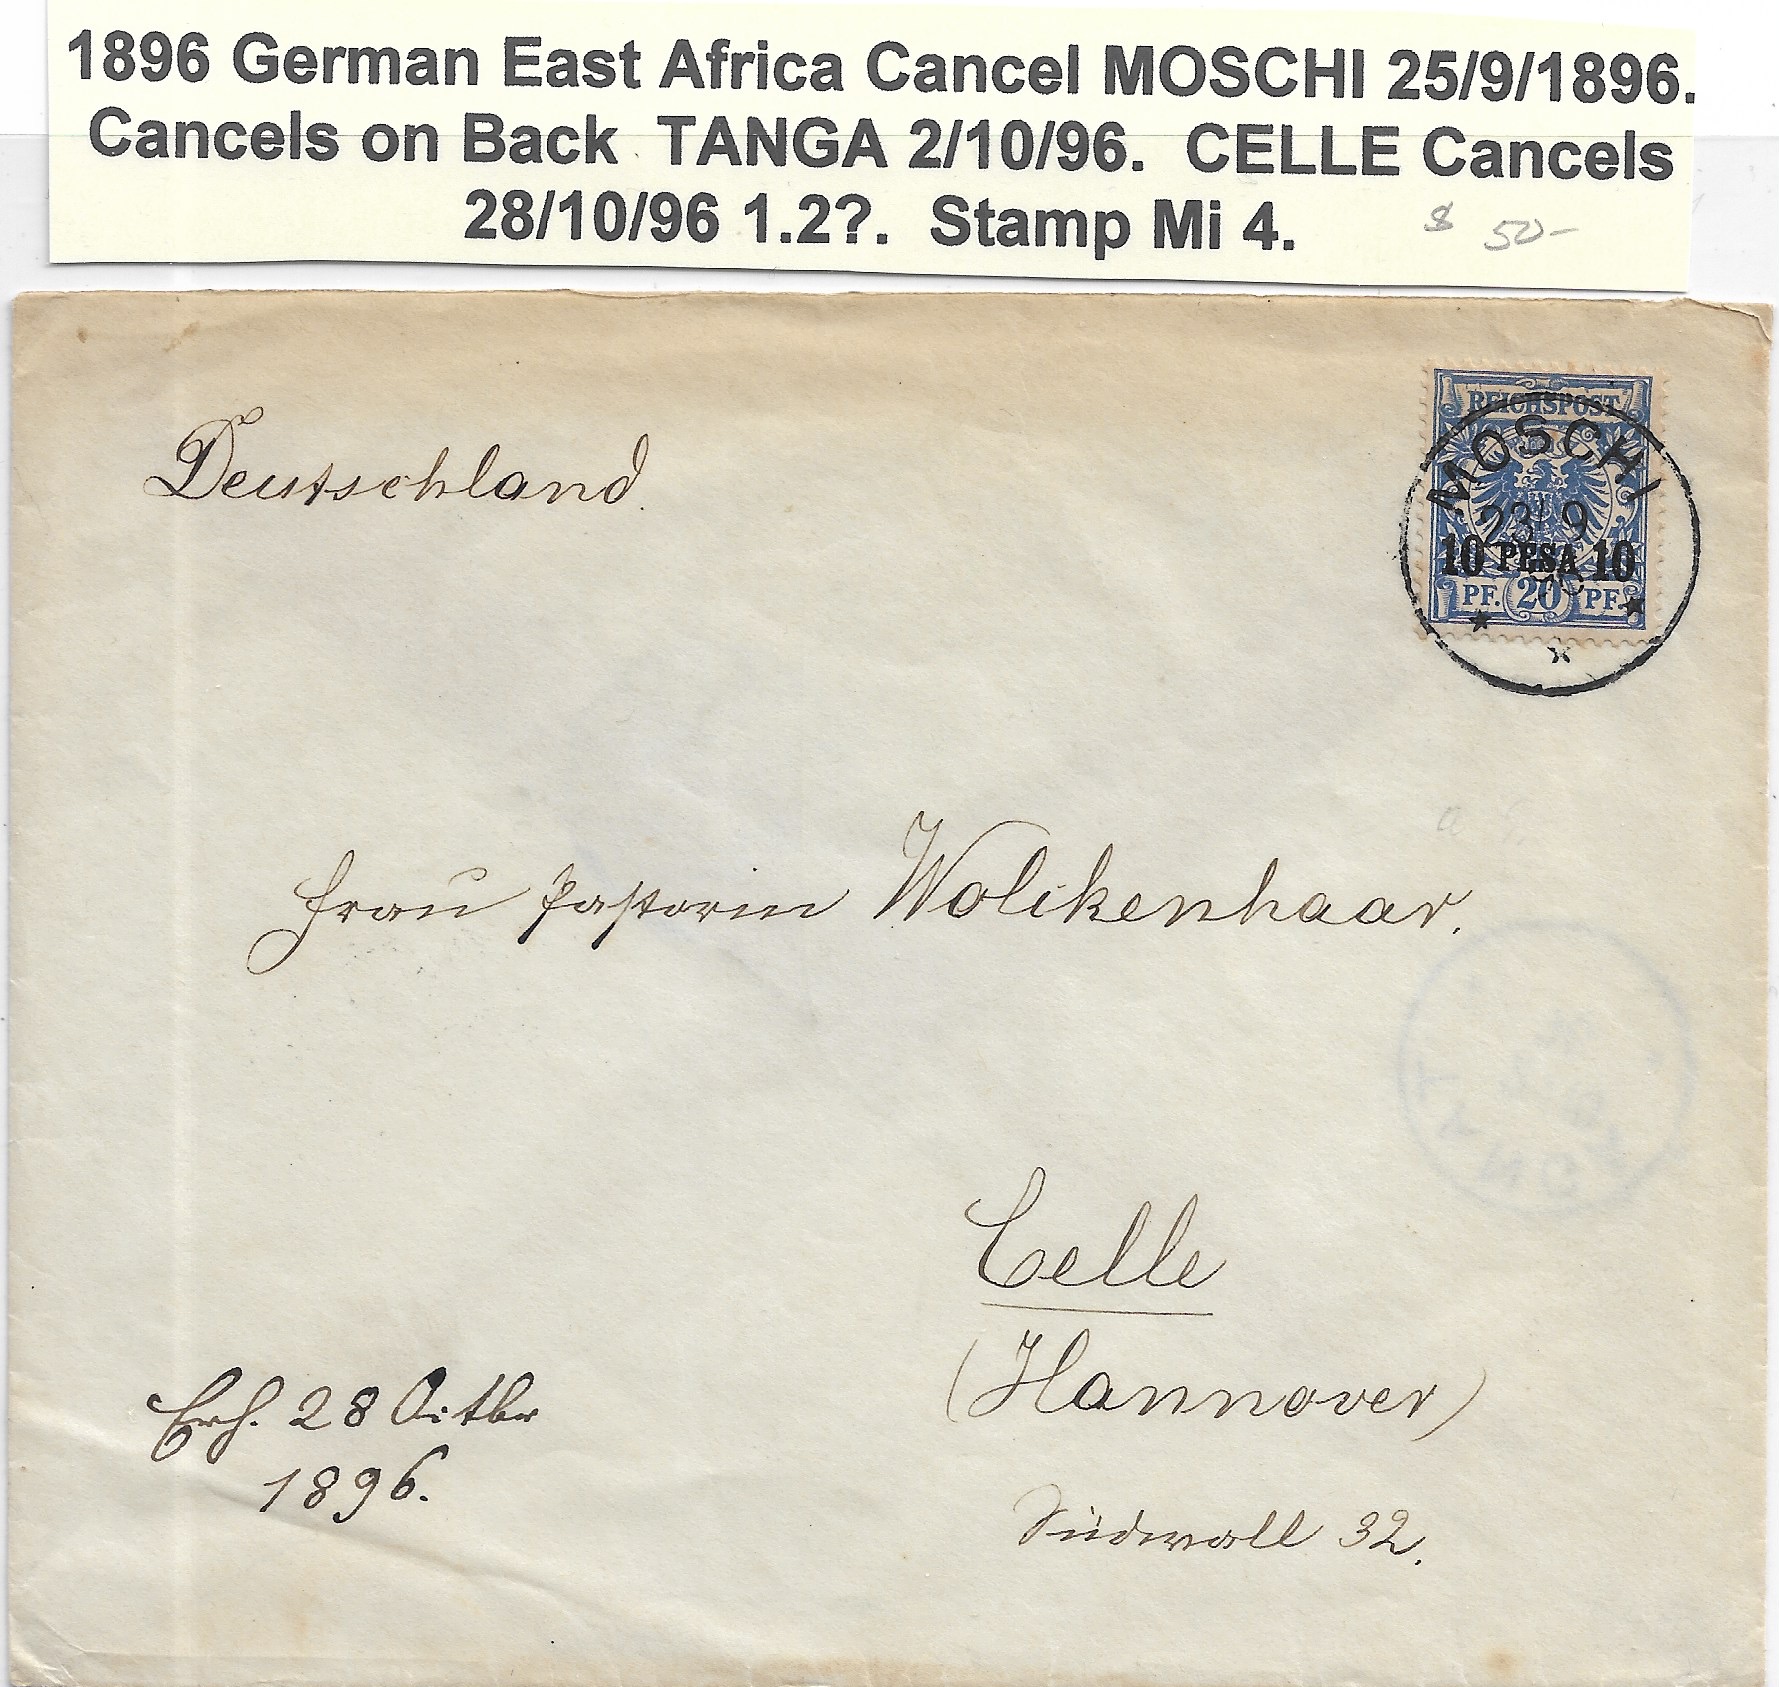 1896 German East Africa Cancel MOSCHI 25/9/1896.
Cancels on Back TANGA 2/10/96. CELLE Cancels
28/10/96 1.2?. Stamp Mi 4.
$ 50-
REICHSPOST
MOSCHI
23 9
96
10 PESA 10
PF. 20 PF.
Deutschland.
Frau Pastorin Wolikenhaar.
Celle
(Hannover)
Südwall 32.
Erh. 28 Octbr
1896.